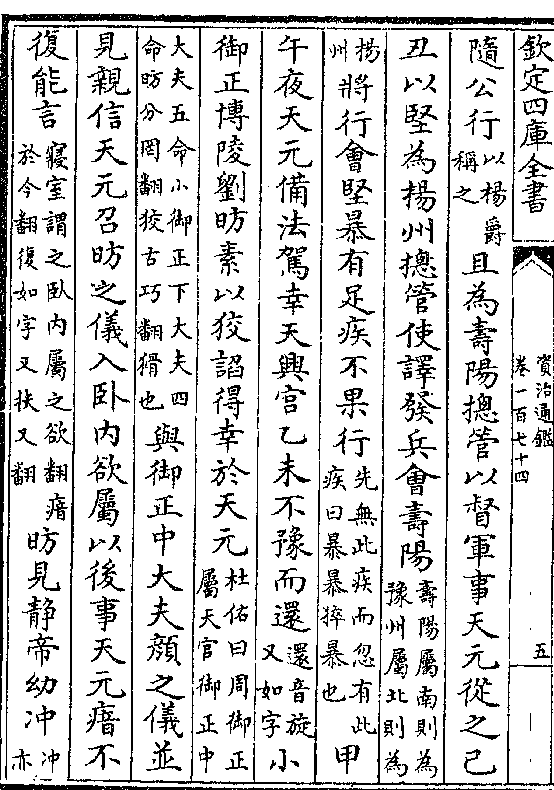 欽定四庫全書
資治通鑑
卷一百七十四
五
隨公行以楊爵稱之且為壽陽揔管以督軍事天元從之己
丑以堅為楊州揔管使譯發兵會壽陽壽陽屬南則為豫州屬北則為
揚州將行會堅暴有足疾不果行先無此疾而忽有此疾曰暴暴猝暴也甲
午夜天元備法駕幸天興宫乙未不豫而還還音旋又如字小
御正博陵劉昉素以狡諂得幸於天元杜佑曰周御正屬天官御正中
大夫五命小御正下大夫四命昉分罔翻狡古巧翻猾也與御正中大夫顔之儀並
見親信天元召昉之儀入卧内欲屬以後事天元瘖不
復能言寢室謂之卧内屬之欲翻瘖於今翻復如字又扶又翻昉見静帝幼冲冲亦